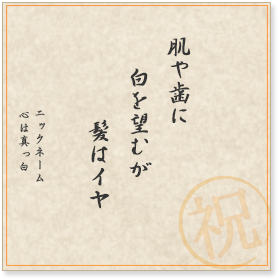 肌や歯に
白を望むが
髪はイヤ
ニックネーム
心は真っ白
祝